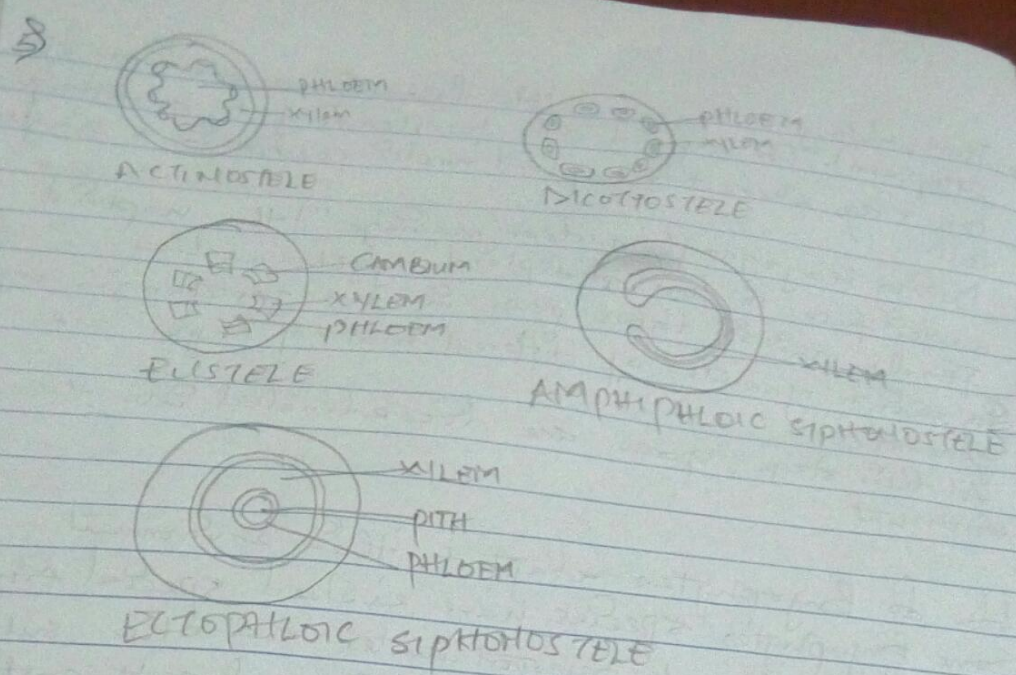 5)
PHLOEM
xylem
ACTINOSTELE
PHLOEM
XYLEM
DICOTTOSTELE
CAMBIUM
XYLEM
PHLOEM
EUSTELE
XYLEM
AMPHIPHLOIC SIPHONOSTELE
XYLEM
PITH
PHLOEM
ECTOPHLOIC SIPHONOSTELE